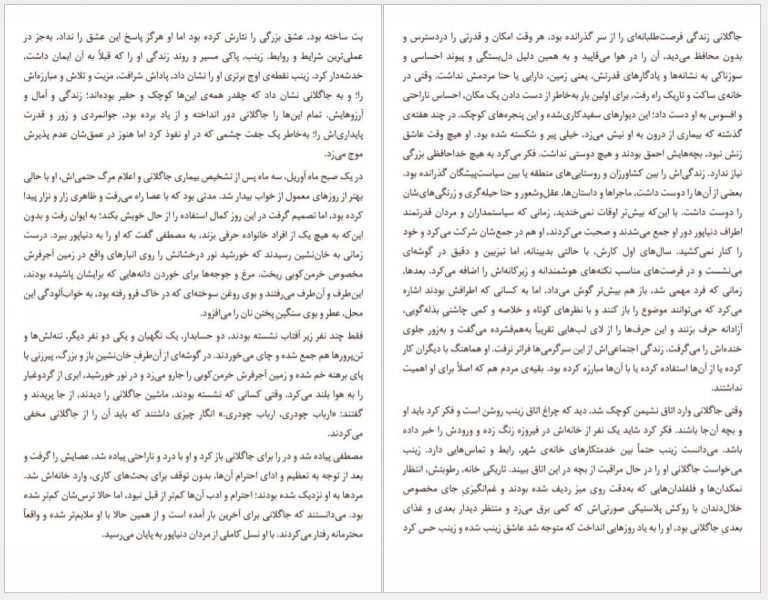 جاگلانی زندگی فرصت‌طلبانه‌ای را از سر گذرانده بود، هر وقت امکان و قدرتی را دردسترس و
بدون محافظ می‌دید، آن را در هوا می‌قاپید و به همین دلیل دل‌بستگی و پیوند احساسی و
سوزناکی به نشانه‌ها و یادگارهای قدرتش، یعنی زمین، دارایی یا حتا مردمش نداشت. وقتی در
خانه‌ی ساکت و تاریک راه رفت، برای اولین بار به‌خاطر از دست دادن یک مکان، احساس ناراحتی
و افسوس به او دست داد؛ این دیوارهای سفیدکاری‌شده و این پنجره‌های کوچک. در چند هفته‌ی
گذشته که بیماری از درون به او نیش می‌زد، خیلی پیر و شکسته شده بود. او هیچ وقت عاشق
زنش نبود، بچه‌هایش احمق بودند و هیچ دوستی نداشت. فکر می‌کرد به هیچ خداحافظی بزرگی
نیاز ندارد. زندگی‌اش را بین کشاورزان و روستایی‌های منطقه یا بین سیاست‌پیشگان گذرانده بود.
بعضی از آن‌ها را دوست داشت، ماجراها و داستان‌ها، عقل‌وشعور و حتا حیله‌گری و زرنگی‌های‌شان
را دوست داشت. با این‌که بیش‌تر اوقات نمی‌خندید، زمانی که سیاستمداران و مردان قدرتمند
اطراف دنیاپور دور او جمع می‌شدند و صحبت می‌کردند، او هم در جمع‌شان شرکت می‌کرد و خود
را کنار نمی‌کشید. سال‌های اول کارش، با حالتی بدبینانه، اما تیزبین و دقیق در گوشه‌ای
می‌نشست و در فرصت‌های مناسب نکته‌های هوشمندانه و زیرکانه‌اش را اضافه می‌کرد. بعدها،
زمانی که فرد مهمی شد، باز هم بیش‌تر گوش می‌داد، اما به کسانی که اطرافش بودند اشاره
می‌کرد که می‌توانند موضوع را باز کنند و با نظرهای کوتاه و خلاصه و کمی چاشنیِ بذله‌گویی،
آزادانه حرف بزنند و این حرف‌ها را از لای لب‌هایی تقریباً به‌هم‌فشرده می‌گفت و به‌زور جلوی
خنده‌اش را می‌گرفت. زندگی اجتماعی‌اش از این سرگرمی‌ها فراتر نرفت. او هماهنگ با دیگران کار
کرده یا از آن‌ها استفاده کرده یا با آن‌ها مبارزه کرده بود. بقیه‌ی مردم هم که اصلاً برای او اهمیت
نداشتند.
وقتی جاگلانی وارد اتاق نشیمن کوچک شد، دید که چراغ اتاق زینب روشن است و فکر کرد باید او
و بچه آن‌جا باشند. فکر کرد شاید یک نفر از خانه‌اش در فیروزه زنگ زده و ورودش را خبر داده
باشد. می‌دانست زینب حتماً بین خدمتکارهای خانه‌ی شهر، رابط و تماس‌هایی دارد. زینب
می‌خواست جاگلانی او را در حال مراقبت از بچه در این اتاق ببیند. تاریکی خانه، رطوبتش، انتظار
نمکدان‌ها و فلفلدان‌هایی که به‌دقت روی میز ردیف شده بودند و غم‌انگیزیِ جای مخصوص
خلال‌دندان با روکش پلاستیکی صورتی‌اش که کمی برق می‌زد و منتظر دیدار بعدی و غذای
بعدیِ جاگلانی بود، او را به یاد روزهایی انداخت که متوجه شد عاشق زینب شده و زینب حس کرد
بت ساخته بود، عشق بزرگی را نثارش کرده بود اما او هرگز پاسخ این عشق را نداد، به‌جز در
عملی‌ترین شرایط و روابط. زینب، پاکی مسیر و روند زندگی او را که قبلاً به آن ایمان داشت،
خدشه‌دار کرد. زینب نقطه‌ی اوج برتری او را نشان داد، پاداش شرافت، مزیت و تلاش و مبارزه‌اش
را؛ و به جاگلانی نشان داد که چقدر همه‌ی این‌ها کوچک و حقیر بوده‌اند؛ زندگی و آمال و
آرزوهایش. تمام این‌ها را جاگلانی دور انداخته و از یاد برده بود، جوانمردی و زور و قدرت
پایداری‌اش را؛ به‌خاطر یک جفت چشمی که در او نفوذ کرد اما هنوز در عمق‌شان عدم پذیرش
موج می‌زد.
در یک صبح ماه آوریل، سه ماه پس از تشخیص بیماری جاگلانی و اعلام مرگ حتمی‌اش، او با حالی
بهتر از روزهای معمول از خواب بیدار شد. مدتی بود که با عصا راه می‌رفت و ظاهری زار و نزار پیدا
کرده بود، اما تصمیم گرفت در این روز کمال استفاده را از حال خویش بکند؛ به ایوان رفت و بدون
این‌که به هیچ یک از افراد خانواده حرفی بزند، به مصطفی گفت که او را به دنیاپور ببرد. درست
زمانی به خان‌نشین رسیدند که خورشید نور درخشانش را روی انبارهای واقع در زمین آجرفرش
مخصوص خرمن‌کوبی ریخت. مرغ و جوجه‌ها برای خوردن دانه‌هایی که برایشان پاشیده بودند،
این‌طرف و آن‌طرف می‌رفتند و بوی روغن سوخته‌ای که در خاک فرو رفته بود، به خواب‌آلودگی این
محل، عطر و بوی سنگینِ پختن نان را می‌افزود.
فقط چند نفر زیر آفتاب نشسته بودند، دو حسابدار، یک نگهبان و یکی دو نفر دیگر، تنه‌لش‌ها و
تن‌پرورها هم جمع شده و چای می‌خوردند. در گوشه‌ای از آن‌طرفِ خان‌نشینِ باز و بزرگ، پیرزنی با
پای برهنه خم شده و زمین آجرفرش خرمن‌کوبی را جارو می‌زد و در نور خورشید، ابری از گردوغبار
را به هوا بلند می‌کرد. وقتی کسانی که نشسته بودند، ماشین جاگلانی را دیدند، از جا پریدند و
گفتند: «ارباب چودری، ارباب چودری.» انگار چیزی داشتند که باید آن را از جاگلانی مخفی
می‌کردند.
مصطفی پیاده شد و در را برای جاگلانی باز کرد و او با درد و ناراحتی پیاده شد، عصایش را گرفت و
بعد از توجه به تعظیم و ادای احترام آن‌ها، بدون توقف برای بحث‌های کاری، وارد خانه‌اش شد.
مردها به او نزدیک شده بودند؛ احترام و ادب آن‌ها کم‌تر از قبل نبود، اما حالا ترس‌شان کم‌تر شده
بود. می‌دانستند که جاگلانی برای آخرین بار آمده است و از همین حالا با او ملایم‌تر شده و واقعاً
محترمانه رفتار می‌کردند. با او نسل کاملی از مردان دنیاپور به پایان می‌رسید.